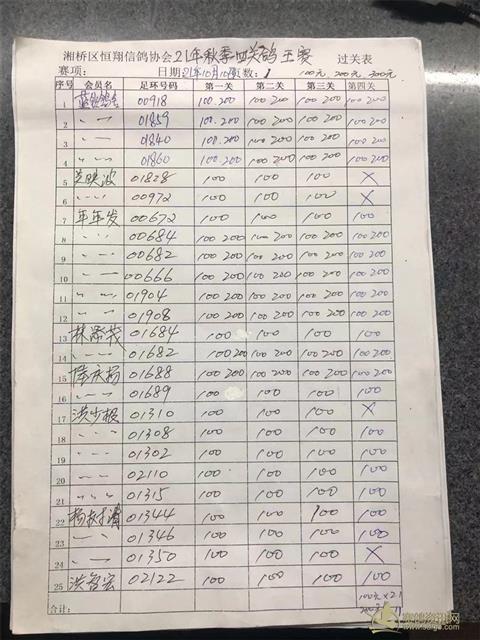 湘桥区恒翔信鸽协会21年秋季四关鸽王赛 过关表
赛项: 日期:21年10月10日 页数:1 100元,200元,300元
序号 会员名 足环号码 第一关 第二关 第三关 第四关
1 00918 100.200 100 200 100 200 100 200
2 〃 01859 100.200 100 200 100 200 100 200
3 〃 01840 100.200 100 200 100 200 100 200
4 〃 01860 100.200 100 200 100 200 100 200
5 01828 100 100 100 X
6 〃 00972 100 100 100 X
7 年年发 00672 100 100 100 100
8 〃 00684 100 200 100 200 100 200 100 200
9 〃 00682 100 200 100 200 100 200 100 200
10 〃 00666 100 200 100 200 100 200 100 200
11 〃 01904 100 200 100 200 100 200 100 200
12 〃 01908 100 200 100 200 100 200 100 200
13 01684 100 100 100 100
14 〃 01682 100 200 100 200 100 200 100 200
15 01688 100 200 100 200 100 200 100 200
16 〃 01689 100 100 100 100
17 洪少根 01310 100 100 100 X
18 〃 01308 100 100 100 100
19 〃 01302 100 100 100 100
20 〃 02110 100 100 100 100
21 〃 01315 100 100 100 100
22 01344 100 100 100 100
23 〃 01346 100 100 100 100
24 〃 01350 100 100 100 X
25 洪智宏 02122 100 100 100 100
合计: 100元×21